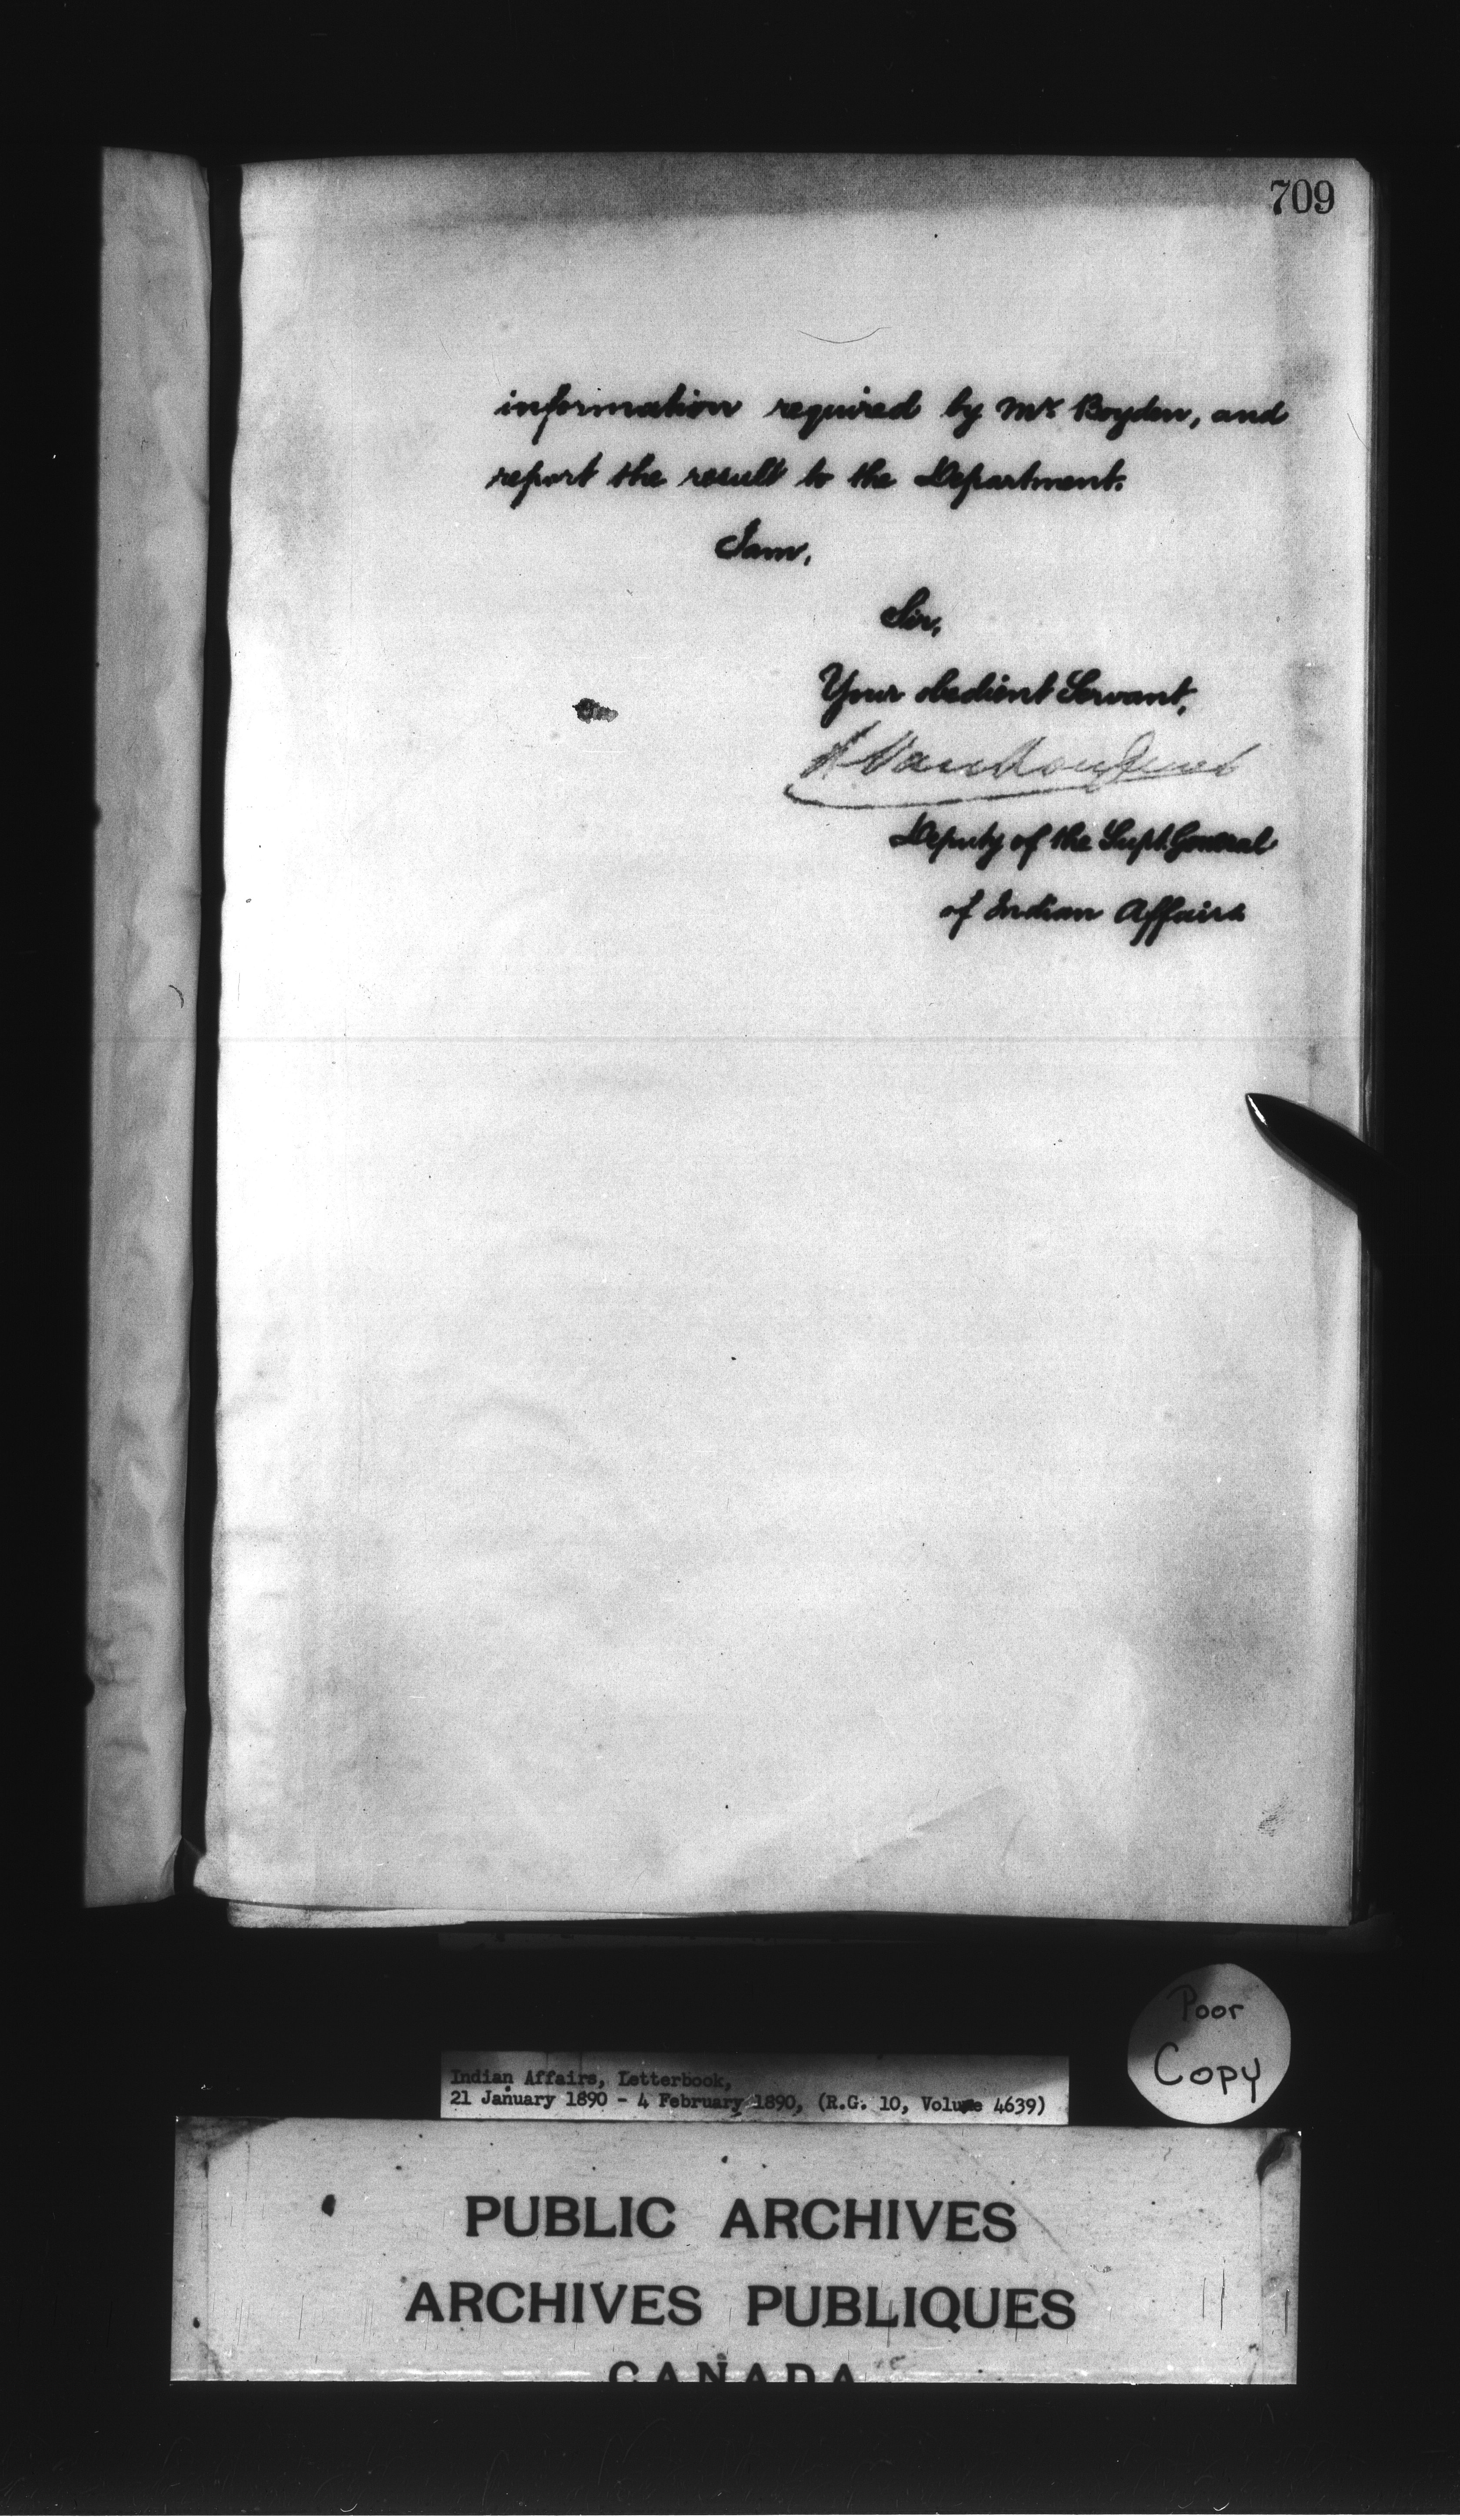 709
information required by Mr Boyden, and
report the result to the Department.
I am,
Sir,
Your obedient Servant,
L Vankoughnet
Deputy of the Supt. General
of Indian Affairs
Poor
Copy
Indian Affairs, Letterbook,
21 January 1890 - 4 February 1890, (R.G. 10, Volume 4639)
PUBLIC ARCHIVES
ARCHIVES PUBLIQUES
CANADA